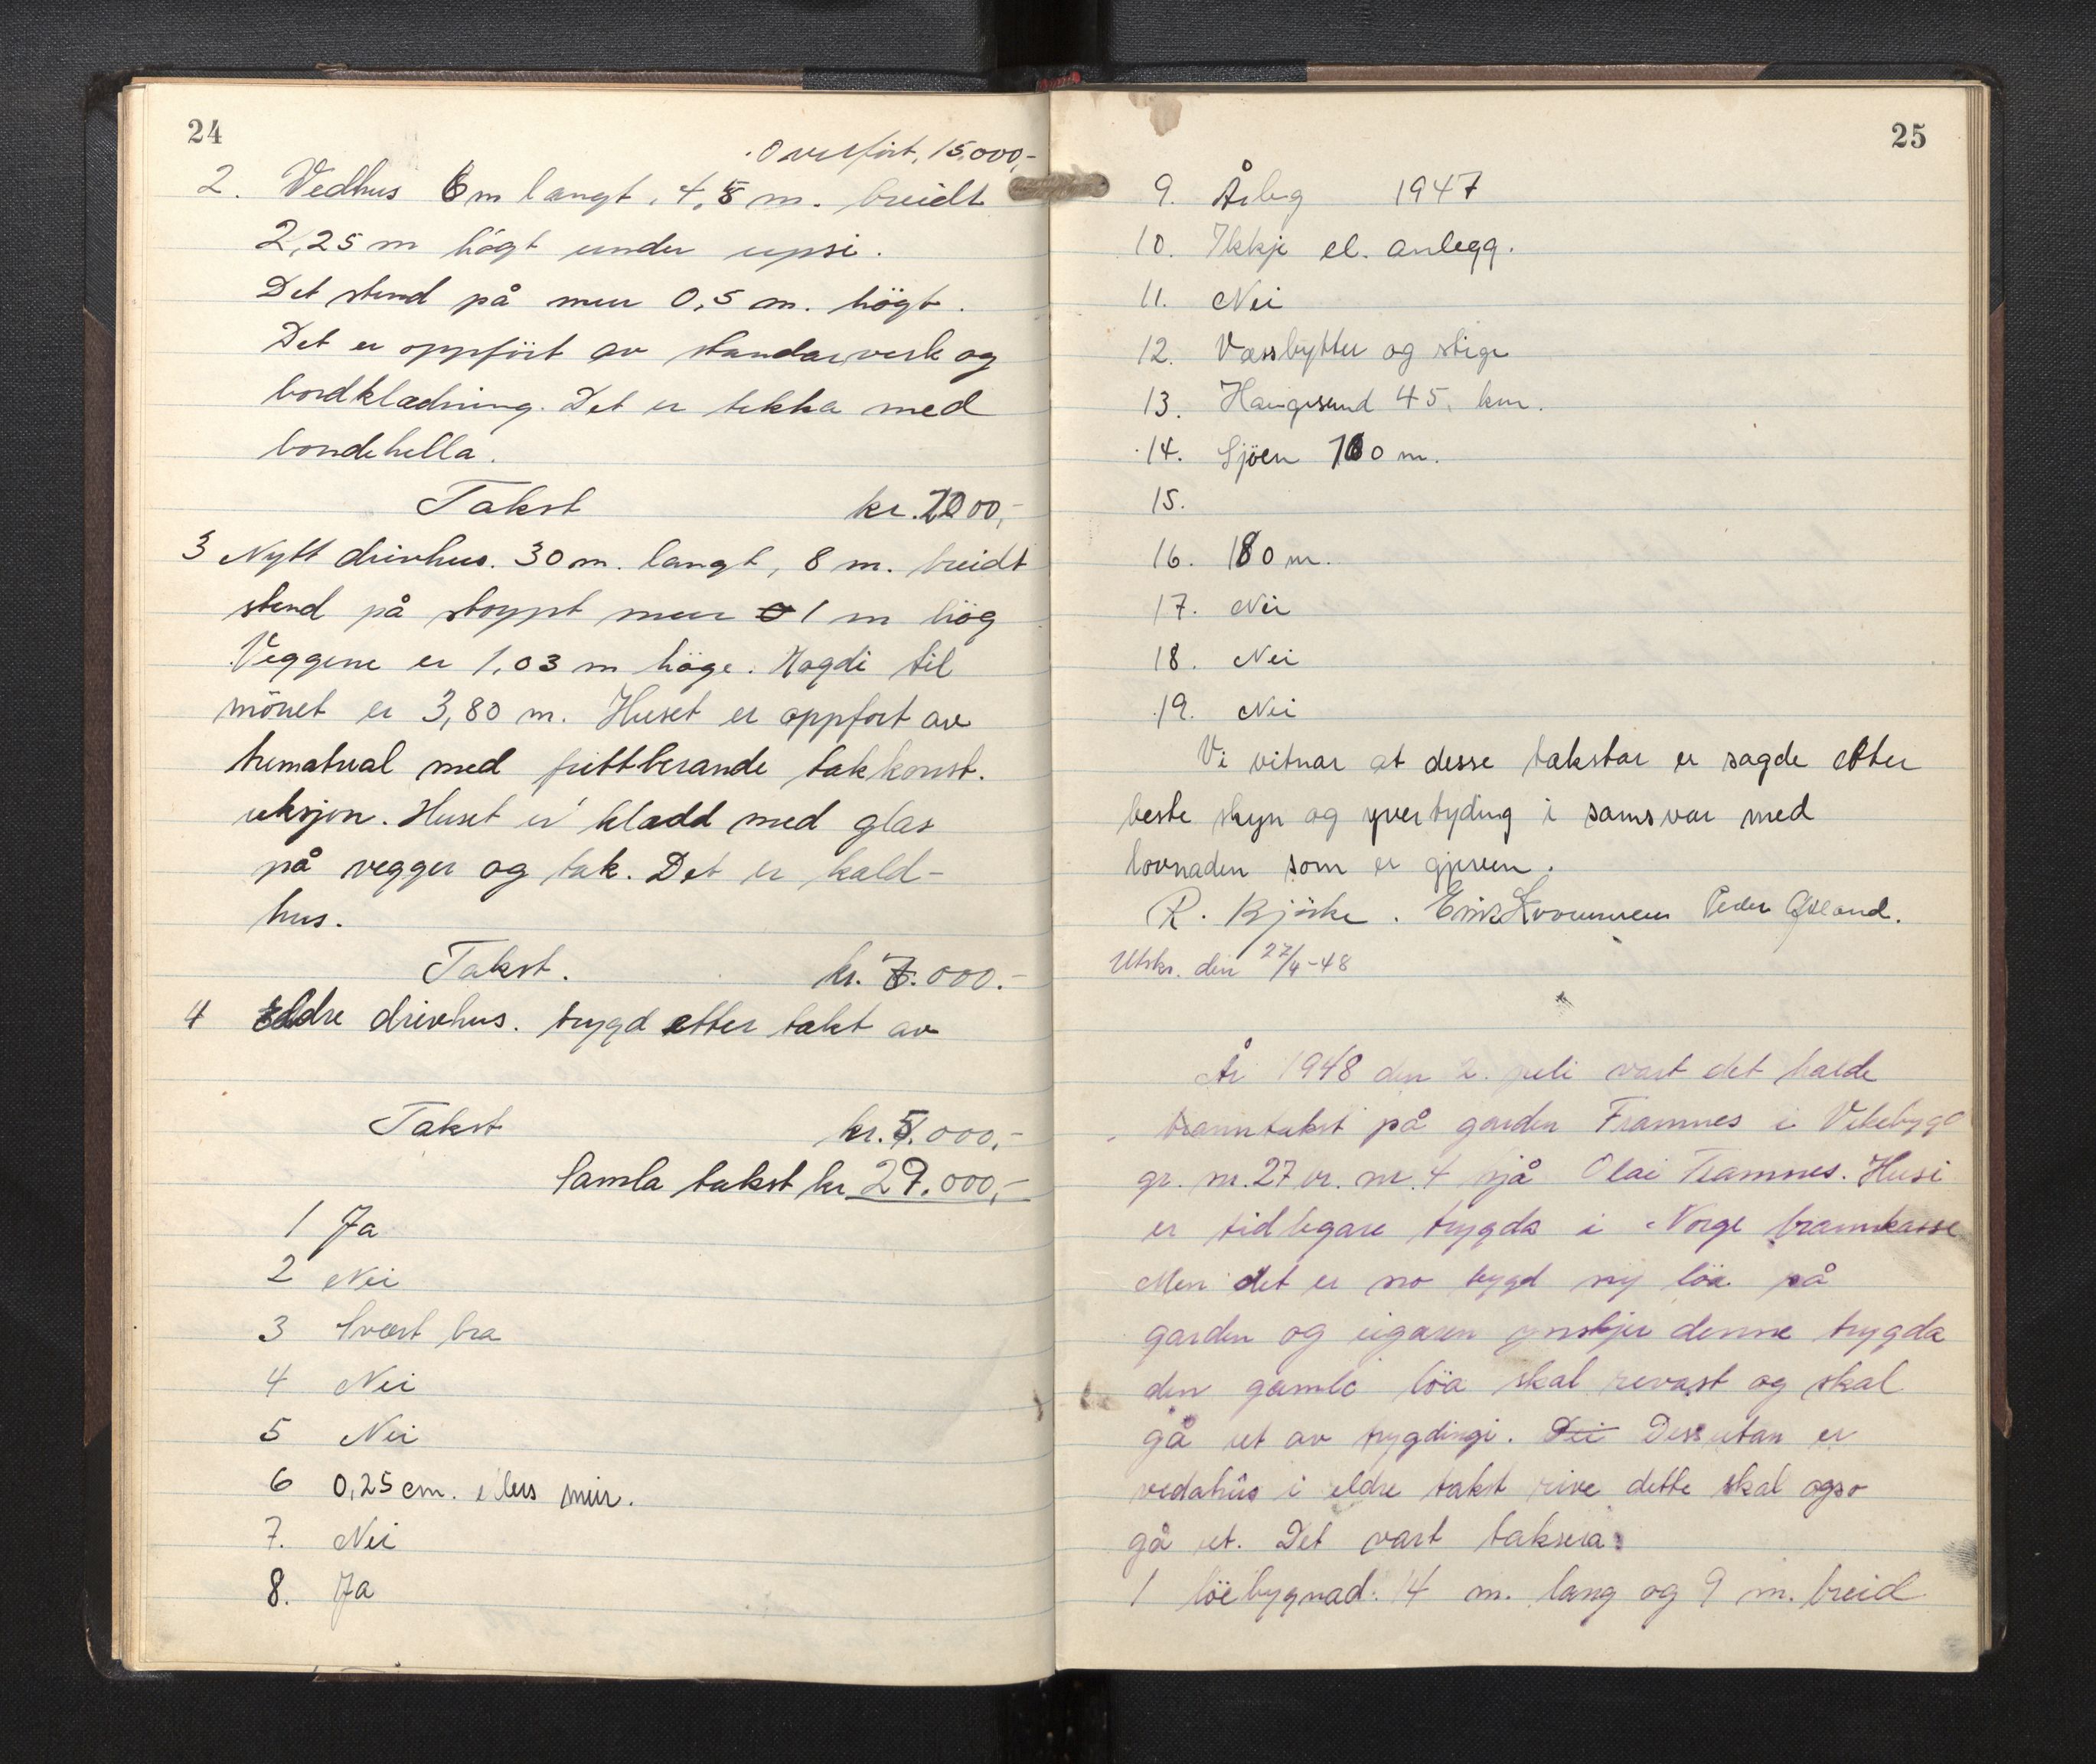 24
Overfört, 15.000,-
2. Vedhus 6 m langt, 4,5 m. breidt
2,25 m högt under upsi.
Det stend på mur 0,5 m. högt.
Det er oppfört av standarverk og
bordklædning. Det er tekka med
bondehella.
Takst kr. 2000,-
3 Nytt drivhus. 30 m. langt, 8 m. breidt
stend på stoypt mur 1 m hög
Veggene er 1,03 m höge. Högdi til
mönet er 3,80 m. Huset er oppfort av
trematrial med frittberande takkonst.
uksjon. Huset er kladd med glas
på vegger og tak. Det er kald-
hus.
Takst. kr. .000.-
4 eldre drivhus. trygd etter takt av
Takst kr. 5.000,-
Samla takst kr 29.000,-
1 Ja
2 Nei
3 Svært bra
4 Nei
5 Nei
6 0,25 cm. ellers mur.
7. Nei
8. Ja
25
9. Årleg 1947
10. Ikkje el. anlegg.
11. Nei
12. Vassbytter og stige
13. Haugesund 45. km.
14. Sjöen 100 m.
15.
16. 180 m.
17. Nei
18. Nei
19. Nei
Vi vitnar at desse takstar er sagde etter
beste skyn og yvertyding i samsvar med
lovnaden som er gjeven.
R. Bjørke. Erik Kvammen Peder Øveland.
Utskr. den 27/4-48
År 1948 den 2. juli vart det halde
branntakst på garden Framnes i Vikebygd
gr. nr. 27 br. nr. 4 hjå Olai Framnes. Husi
er tidlegare trygda i Norge brannkasse
Men det er no bygd ny löa på
garden og eigaren ynskjer denne trygda
den gamle löa skal rivast og skal
gå ut av trygdingi. Dei Dessutan er
vedahus i eldre takst rive dette skal ogso
gå ut. Det vart taksera:
1 löebygnad: 14 m. lang og 9 m. breid